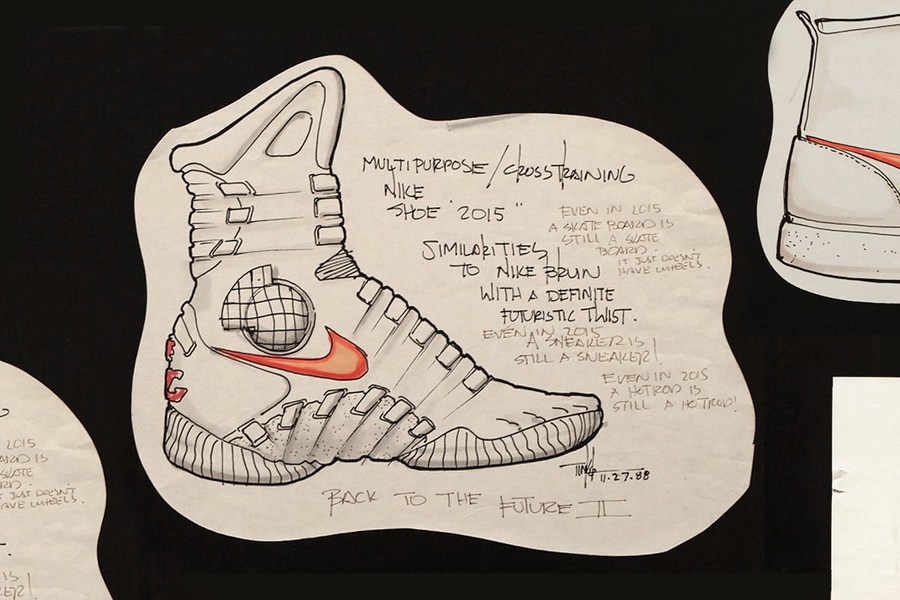 MULTIPURPOSE / CROSSTRAINING
NIKE
SHOE '2015"
EVEN IN 2015
A SKATE BOARD IS
STILL A SKATE
BOARD.
IT JUST DOESN'T
HAVE WHEELS.
SIMILARITIES
TO NIKE BRUIN
WITH A DEFINITE
FUTURISTIC TWIST.
EVEN IN 2015
A SNEAKER IS
STILL A SNEAKER!
EVEN IN 2015
A HOTROD IS
STILL A HOTROD!
11.27.88
BACK TO THE FUTURE II
2015
SKATE
JUST DOESN'T
HAVE WHEELS.